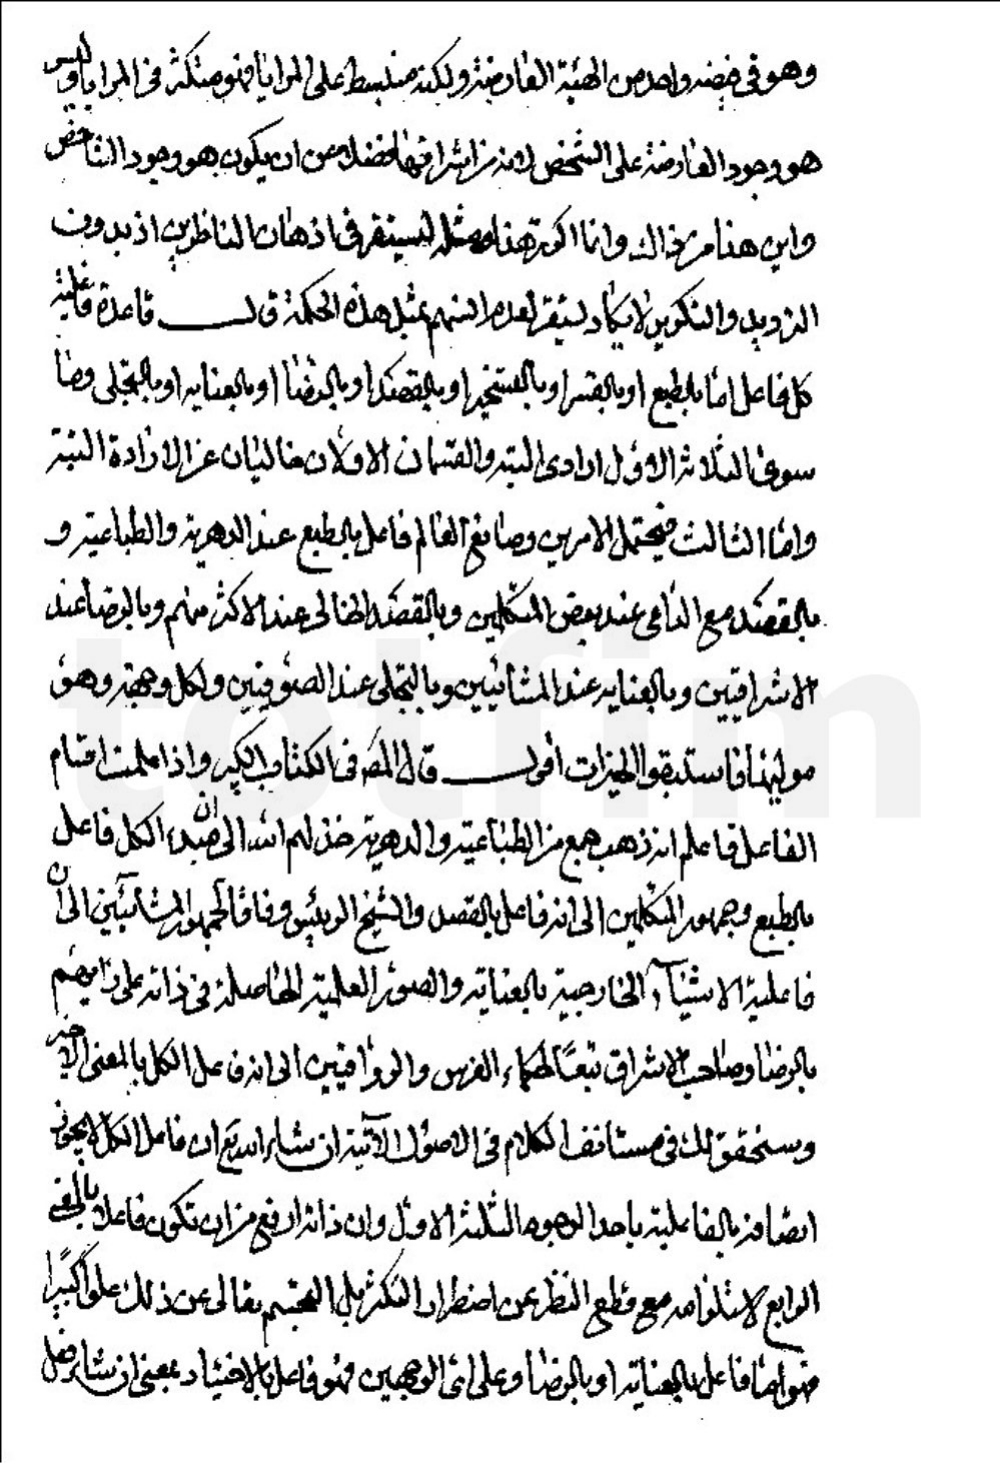 وهو في نفسه واحد من الهيئة العارضة ولكنه منبسط على المرايا فهو متكثر في المرايا وليس
هو وجود العارضة على الشخص لانه من اشراقها فضلا عن ان يكون هو وجود الشاخص
واين هذا من ذاك وانما اكرر هذا ومثله ليستقر في اذهان الناظرين اذ بدون
الترديد والتكوير لا يكاد ليستقر لعدم انسهم بمثل هذه الحكمة قال قاعدة فاعلية
كل فاعل اما بالطبع او بالقسر او بالتسخير او بالقصد او بالرضا او بالعناية او بالتجلى وما
سوى الثلاثة الاول ارادى البتة والقسمان الاولان خاليان عن الارادة البتة
واما الثالث فيحتمل الامرين وصانع العالم فاعل بالطبع عند الدهرية والطباعية و
بالقصد مع الداعي عند بعض المتكلمين وبالقصد الخالى عند الاكثر منهم وبالرضا عند
الاشراقيين وبالعناية عند المشائيين وبالتجلى عند الصوفيين ولكل وجهة وهو
موليها فاستبقوا الخيرات اقول قال المصر في الكتاب الكبير واذا علمت اقسام
الفاعل فاعلم انه ذهب جمع من الطباعية والدهرية خذلهم الله الى ان مبدء الكل فاعل
بالطبع وجمهور المتكلمين الى انه فاعل بالقصد والشيخ الرئيس وفاقا لجمهور المشائيين الى ان
فاعلية الاشياء الخارجية بالعناية والصور العلمية الحاصلة في ذاته على رايهم
بالرضا وصاحب الاشراق تبعا لحكماء الفرس والرواقيين الى انه فاعل الكل بالمعنى الاخير
وسنحقق لك في مستانف الكلام في الاصول الآتية ان شاء الله تع ان فاعل الكل لا يجوز
اتصافه بالفاعلية باحد الوجوه الثلثة الاول وان ذاته ارفع من ان تكون فاعلا بالمعنى
الرابع لاستلزامه مع قطع النظر عن اضطرار التكثر بل التجسم تعالى عن ذلك علوا كبيرا
فهو اما فاعل بالعناية او بالرضا وعلى اى الوجهين فهو فاعل بالاختيار بمعنى ان شاء فعل
totfim